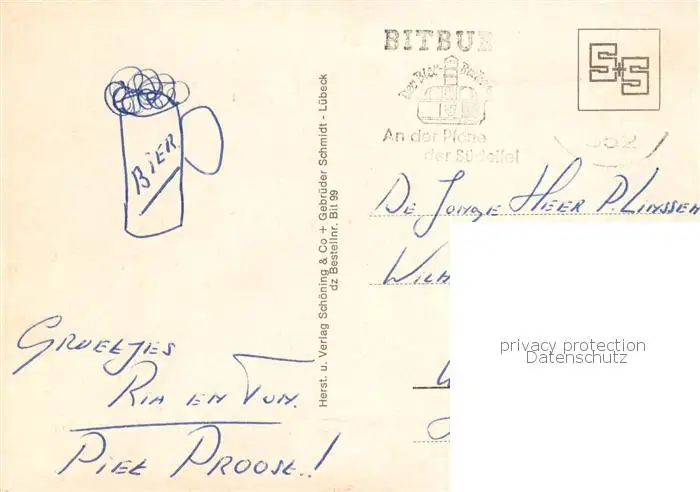 BIER
Groetjes
Ria en Ton.
Piet Proost..!
Herst. u. Verlag Schöning & Co + Gebrüder Schmidt - Lübeck
dz Bestellnr. Bit 99
BITBUR
An der Pforte
der Südeifel
S+S
De Jonge Heer P. Linssen
Wilh
privacy protection
Datenschutz